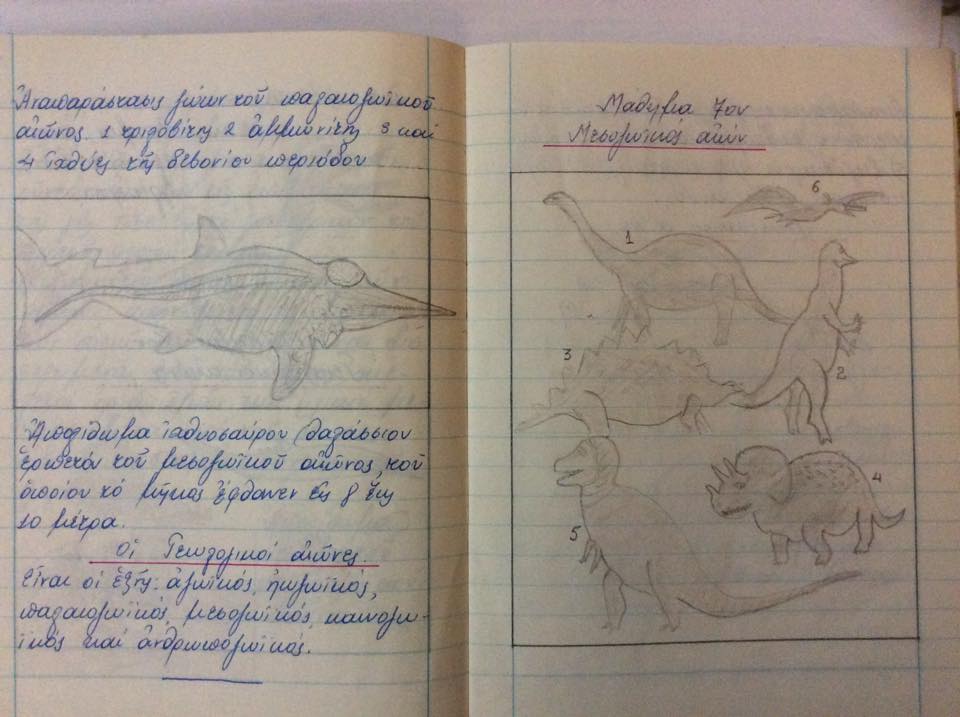 Ἀναπαράστασις ζώων τοῦ παλαιοζωϊκοῦ
αἰῶνος. 1 τριλοβίτη 2 ἀμμωνίτη 3 καί
4 ἰχθύες τῆς δεβονίου περιόδου
Ἀπολίθωμα ἰχθυοσαύρου (θαλάσσιου
ἑρπετόν τοῦ μεσοζωϊκοῦ αἰῶνος, τοῦ
ὁποίου τό μῆκος ἔφθανεν εἰς 8 ἕως
10 μέτρα.
Οἱ Γεωλογικοί αἰῶνες.
Εἶναι οἱ ἑξῆς. ἀζωϊκός, ἠωζωϊκός,
παλαιοζωϊκός, μεσοζωϊκός, καινοζω-
ϊκός καί ἀνθρωποζωϊκός.
Μάθημα 7ον
Μεσοζωϊκός αἰών
6
1
3
2
4
5